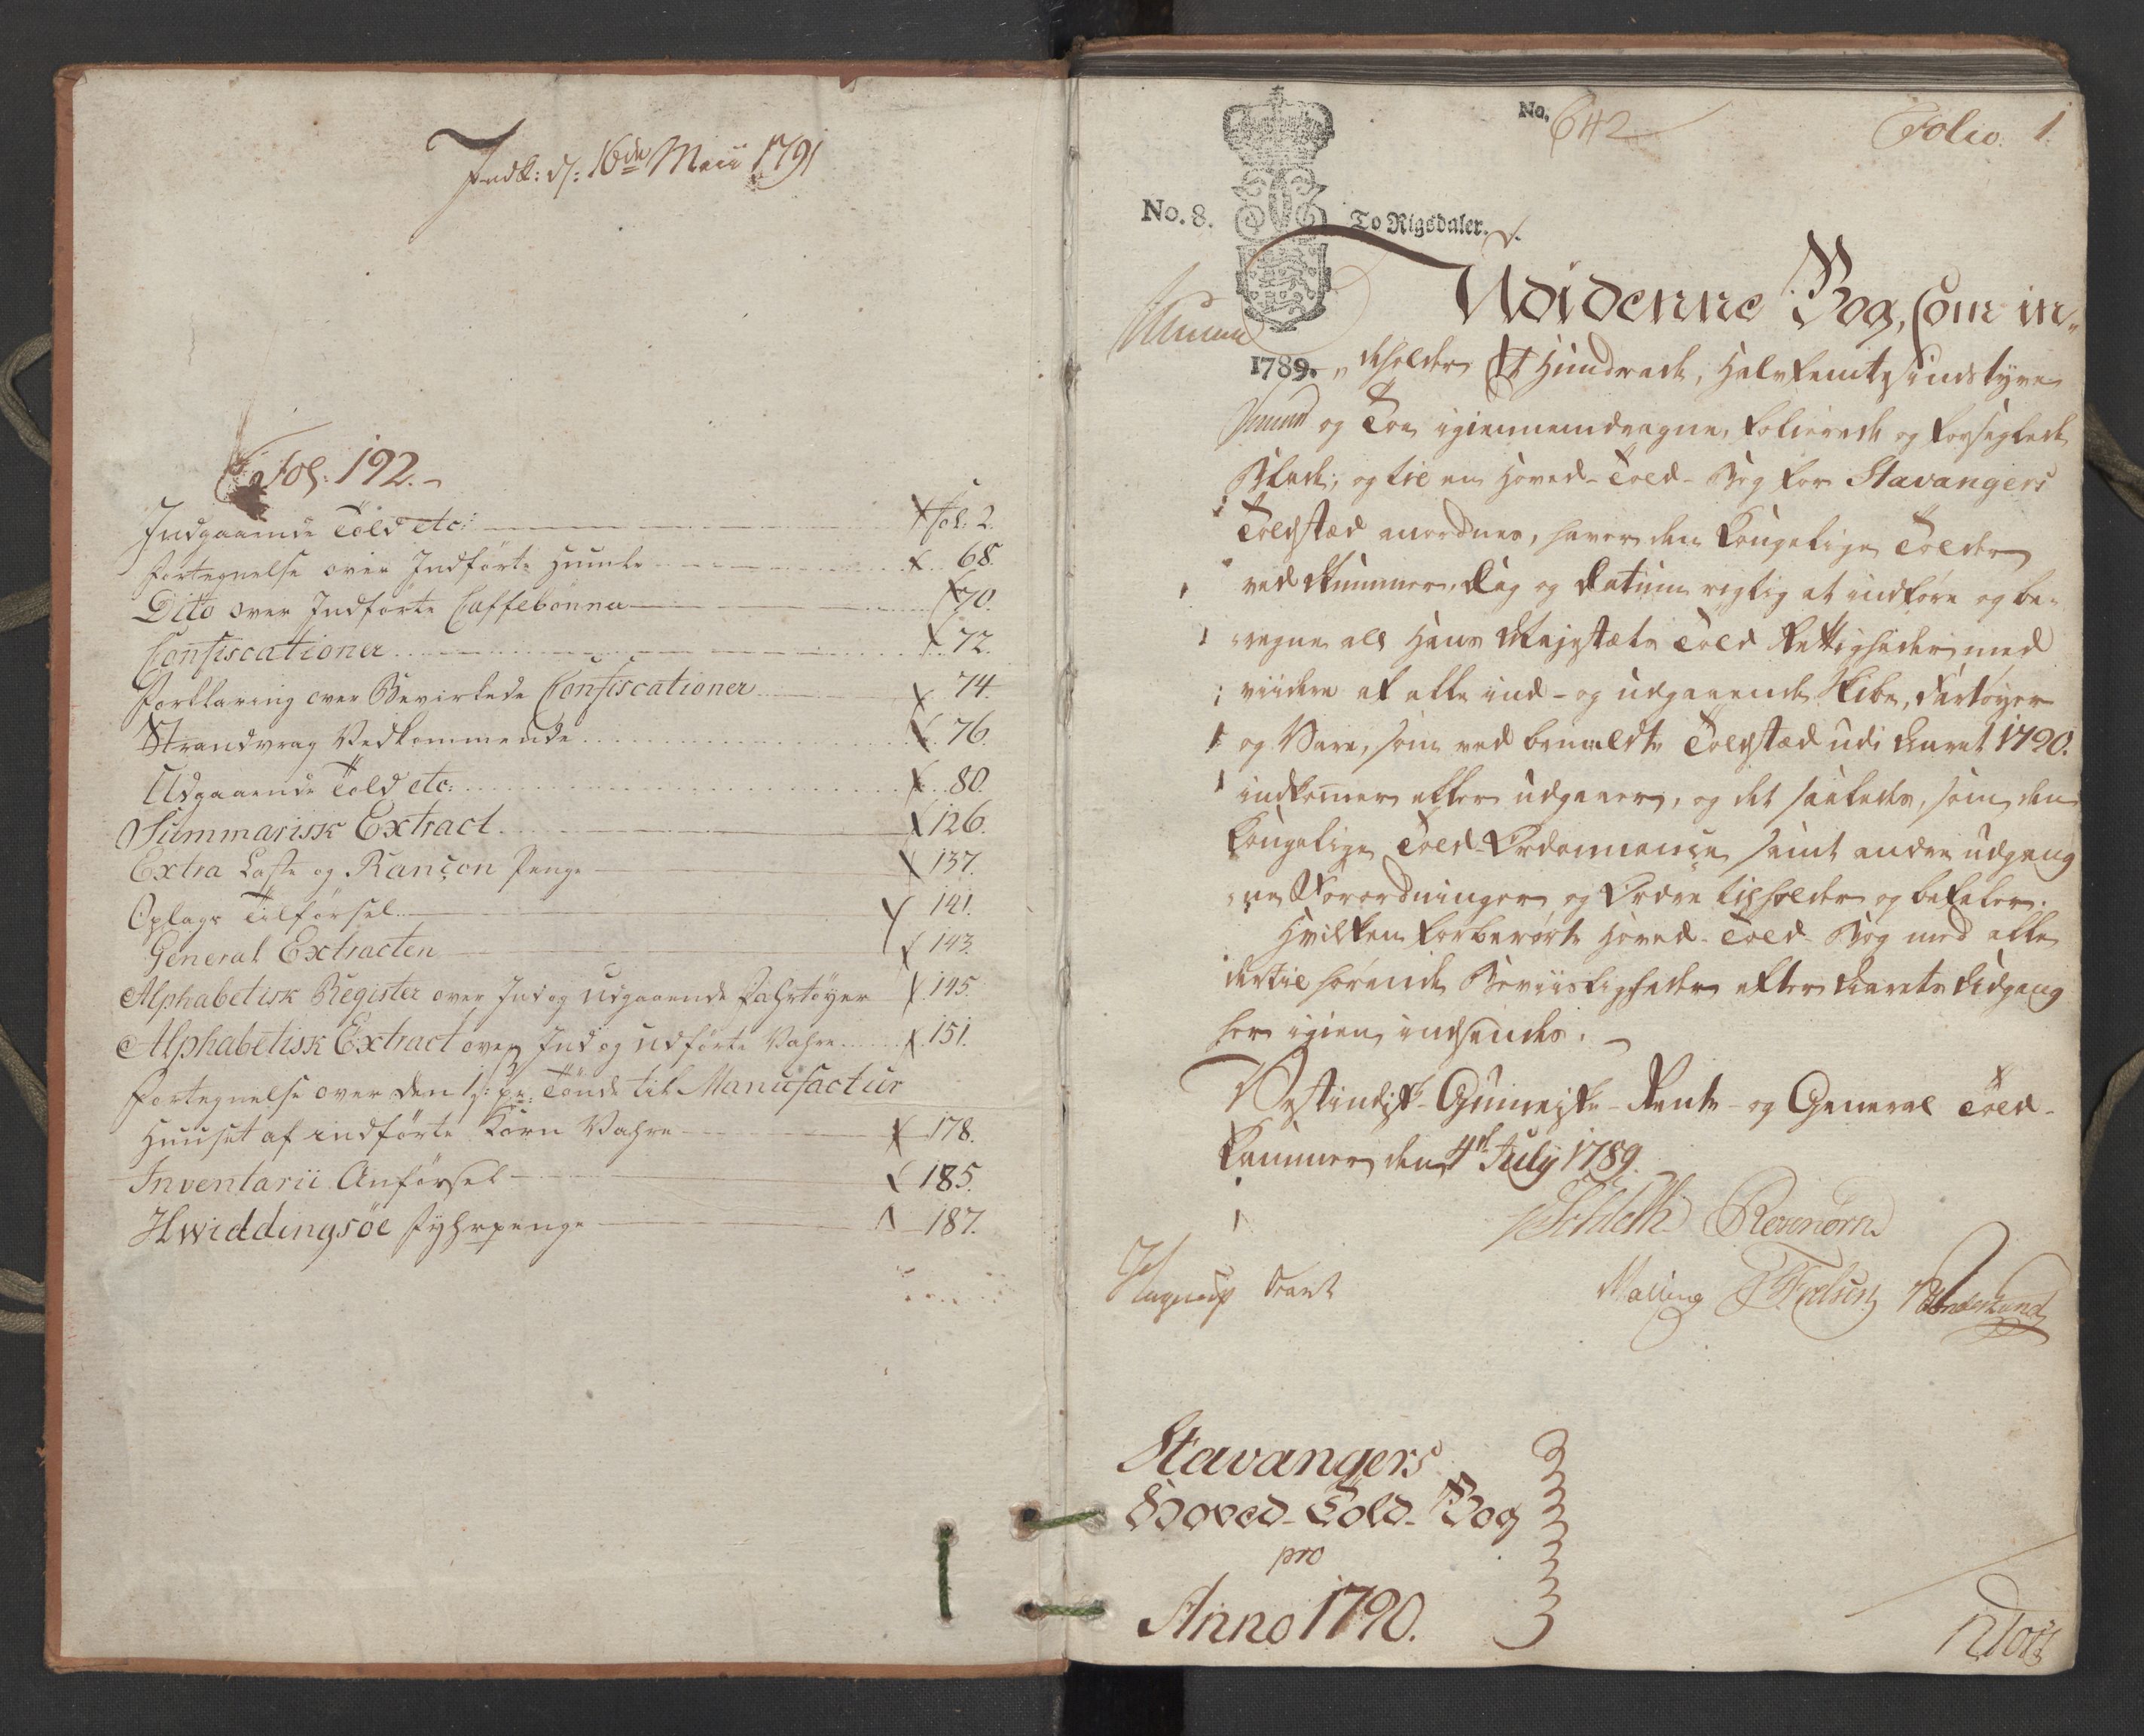 Indk: d: 16de Maii 1791
Fol: 192.
Indgaaende Told etc: Fol: 2.
Fortegnelse over Indførte Humle 68.
Dito over Indførte Caffebønner 70.
Confiscationer 72.
Forklaring over Bevirkede Confiscationer 74.
Strandvrag Vedkommende 76.
Udgaaende Told etc: 80.
Summarisk Extract 126.
Extra Laste og Rançon Penge 137.
Oplags Tilførsel 141.
General Extracten 143.
Alphabetisk Register over Ind og Udgaaende Fahrtøyer 145.
Alphabetisk Extract over Ind og Udførte Vahre 151.
Fortegnelse over den 1 s: pr: Tønde til Manufactur
Huuset af indførte Korn Vahre 178.
Inventarii Anførsel 185.
Hwiddingsöe Fyhrpenge 187.
No. 642
Folio. 1.
No. 8. To Rigsdaler.
Udi denne Bog, som in„
1789. „deholder Et Hundrede, Halvfemtesindstyve
og Toe igiennemdragne, folierede og forseglede
Blade; og til en Hoved-Told-Bog for Stavangers
Toldsted anordnes, haver den Kongelige Tolder
ved Nummer, Dag og Datum rigtig at indføre og be-
regne all Hans Majestæts Told Rettigheder med
viidere af alle ind- og udgaaende Skibe, Fartøyer
og Vare, som ved bemeldte Toldsted udi Aaret 1790.
indkommer eller udgaaer, og det saaledes, som den
Kongelige Told-Ordonnance samt andre udgang
ne Forordninger og Ordre tilholder og befaler.
Hvilken forberørte Hoved-Told-Bog med alle
dertil hørende Beviisligheder efter Aarets Udgang
her igien indsendes.
Vestindisk-Guineiske-Rente- og General Told-
Kammer den 4de July 1789.
Schleth Rosenørn
Malling
Stavangers
Hoved-Told-Bog
pro
Anno 1790.